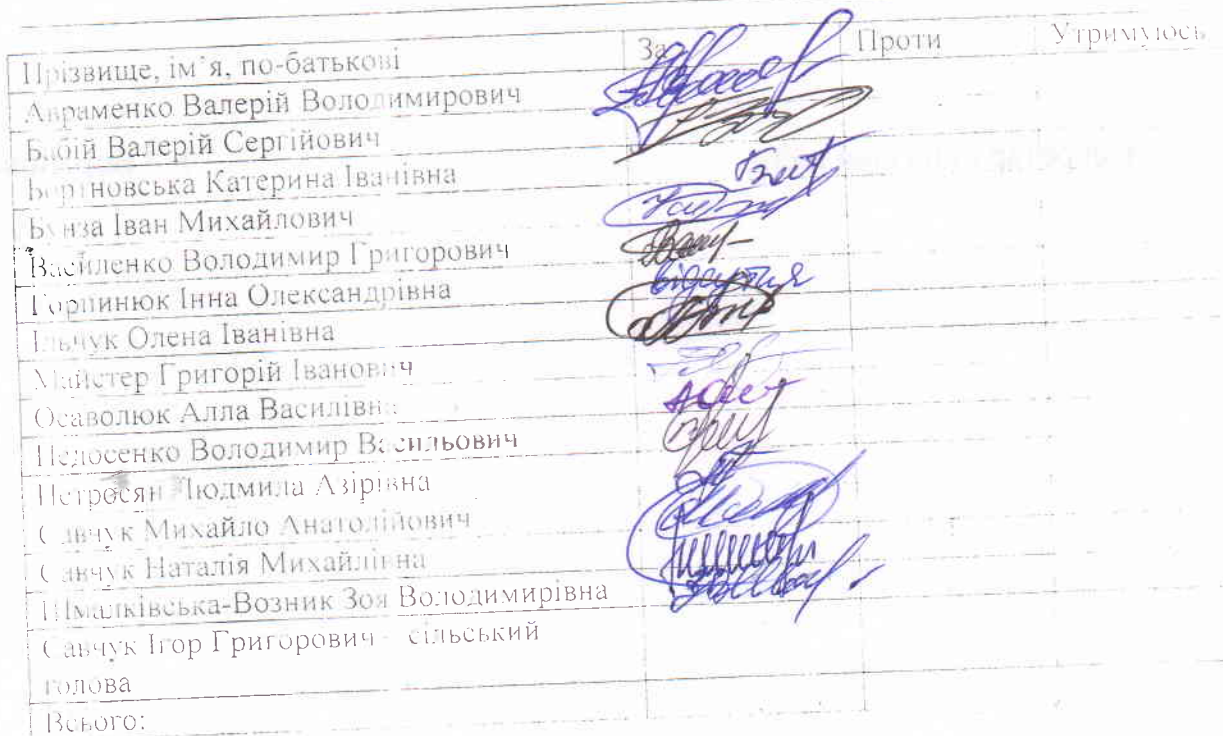 Прізвище, ім`я, по-батькові За Проти Утримуюсь
Авраменко Валерій Володимирович
Бабій Валерій Сергійович
Катерина Іванівна
Бунза Іван Михайлович
Василенко Володимир Григорович
Горпинюк Інна Олександрівна відсутня
Ільчук Олена Іванівна
Майстер Григорій Іванович
Осаволюк Алла Василівна
Педосенко Володимир Васильович
Петросян Людмила Азірівна
Савчук Михайло Анатолійович
Савчук Наталія Михайлівна
Шмалківська-Возник Зоя Володимирівна
Савчук Ігор Григорович - сільський
голова
Всього: